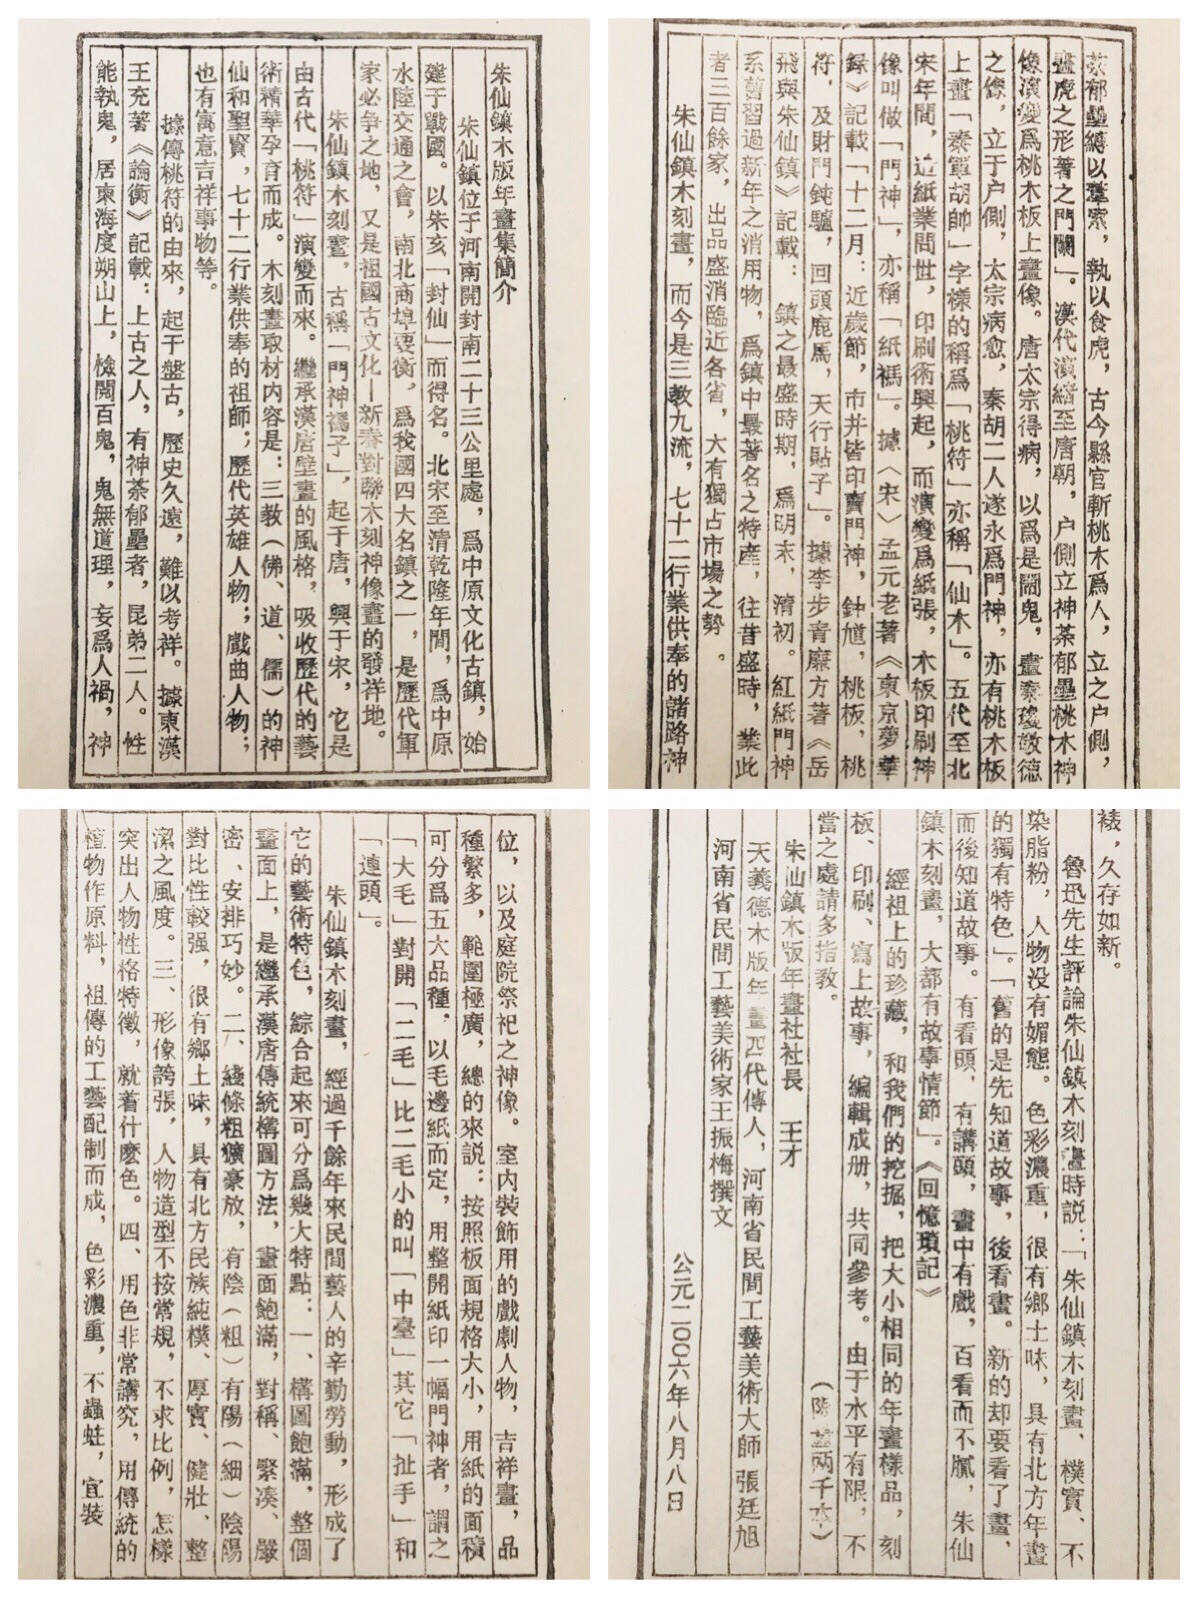 朱仙鎮木版年畫集簡介
朱仙鎮位于河南開封南二十三公里處，爲中原文化古鎮，始
建于戰國。以朱亥「封仙」而得名。北宋至清乾隆年間，爲中原
水陸交通之會，南北商埠要衡，爲我國四大名鎮之一，是歷代軍
家必争之地，又是祖國古文化—新春對聯木刻神像畫的發祥地。
朱仙鎮木刻畫，古稱「門神禡子」，起于唐，興于宋，它是
由古代「桃符」演變而來。繼承漢唐壁畫的風格，吸收歷代的藝
術精華孕育而成。木刻畫取材内容是：三教（佛、道、儒）的神
仙和聖賢，七十二行業供奉的祖師；歷代英雄人物；戲曲人物；
也有寓意吉祥事物等。
據傳桃符的由來，起于盤古，歷史久遠，難以考祥。據東漢
王充著《論衡》記載：上古之人，有神荼郁壘者，昆弟二人。性
能執鬼，居東海度朔山上，檢閲百鬼，鬼無道理，妄爲人禍，神
荼郁壘縛以葦索，執以食虎，古今縣官斬桃木爲人，立之户側，
畫虎之形著之門闌」。漢代演緒至唐朝，户側立神荼郁壘桃木神
像演變爲桃木板上畫像。唐太宗得病，以爲是鬧鬼，畫秦瓊敬德
之像，立于户側，太宗病愈，秦胡二人遂永爲門神，亦有桃木板
上畫「秦軍胡帥」字樣的稱爲「桃符」亦稱「仙木」。五代至北
宋年間，造紙業問世，印刷術興起，而演變爲紙張，木板印刷神
像叫做「門神」，亦稱「紙禡」。據〈宋〉孟元老著《東京夢華
録》記載「十二月：近歲節，市井皆印賣門神，鈡馗，桃板，桃
符，及財門鈍驢，回頭鹿馬，天行貼子」。據李步青廉方著《岳
飛與朱仙鎮》記載：　鎮之最盛時期，爲明末，清初。紅紙門神
系舊習過新年之消用物，爲鎮中最著名之特産，往昔盛時，業此
者三百餘家，出品盛消臨近各省，大有獨占市場之勢。
朱仙鎮木刻畫，而今是三教九流，七十二行業供奉的諸路神
位，以及庭院祭祀之神像。室内裝飾用的戲劇人物，吉祥畫，品
種繁多，範圍極廣，總的來説：按照板面規格大小，用紙的面積
可分爲五大品種，以毛邊紙而定，用整開紙印一幅門神者，謂之
「大毛」對開「二毛」比二毛小的叫「中臺」其它「扯手」和
「連頭」。
朱仙鎮木刻畫，經過千餘年來民間藝人的辛勤勞動，形成了
它的藝術特色，綜合起來可分爲幾大特點：一、構圖飽滿，整個
畫面上，是繼承漢唐傳統構圖方法，畫面飽滿，對稱、緊凑、嚴
密、安排巧妙。二、綫條粗獷豪放，有陰（粗）有陽（細）陰陽
對比性較强，很有鄉土味，具有北方民族純樸、厚實、健壯、整
潔之風度。三、形像誇張，人物造型不按常規，不求比例，怎樣
突出人物性格特徵，就着什麽色。四、用色非常講究，用傳統的
植物作原料，祖傳的工藝配制而成，色彩濃重，不蟲蛀，宜裝
裱，久存如新。
魯迅先生評論朱仙鎮木刻畫時説：「朱仙鎮木刻畫，樸實、不
染脂粉，人物没有媚態。色彩濃重，很有鄉土味，具有北方年畫
的獨有特色」。「舊的是先知道故事，後看畫。新的却要看了畫，
而後知道故事。有看頭，有講頭，畫中有戲，百看而不膩，朱仙
鎮木刻畫，大都有故事情節」。《回憶瑣記》
經祖上的珍藏，和我們的挖掘，把大小相同的年畫樣品，刻
板、印刷、寫上故事，編輯成册，共同參考。由于水平有限，不
當之處請多指教。
（限 兩千本）
朱汕鎮木版年畫社社長　王才
天義德木版年畫四代傳人，河南省民間工藝美術大師　張廷旭
河南省民間工藝美術家王振梅撰文
公元二〇〇六年八月八日